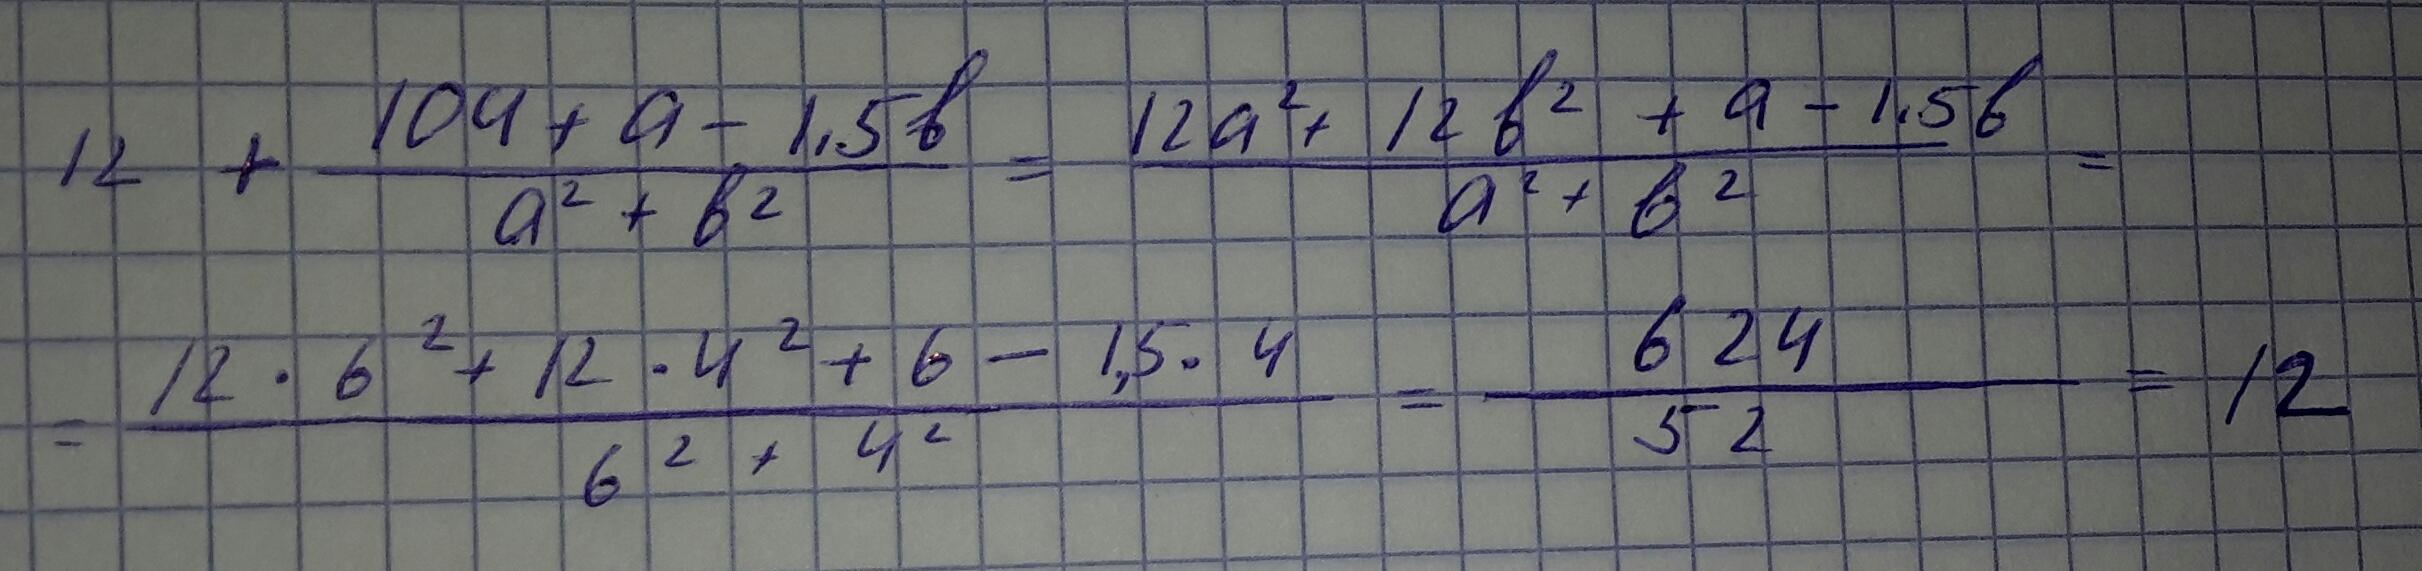 12 + (104 + a - 1,5b)/(a² + b²) = (12a² + 12b² + a - 1,5b)/(a² + b²) =
= (12 · 6² + 12 · 4² + 6 - 1,5 · 4)/(6² + 4²) = 624/52 = 12